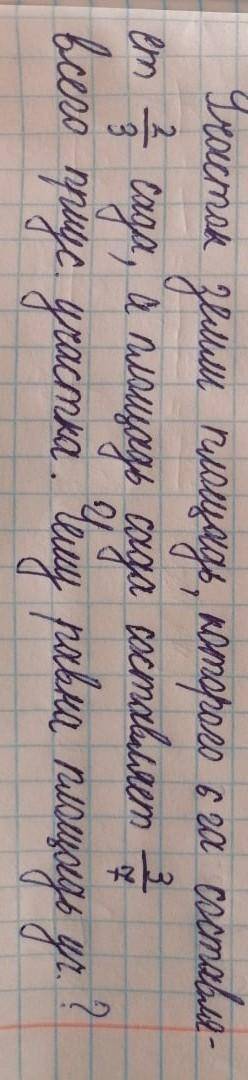 Участок земли площадь, которого 6 га составля-
ет 2/3 сада, а площадь сада составляет 3/7
всего приус. участка. Чему равна площадь уч.?